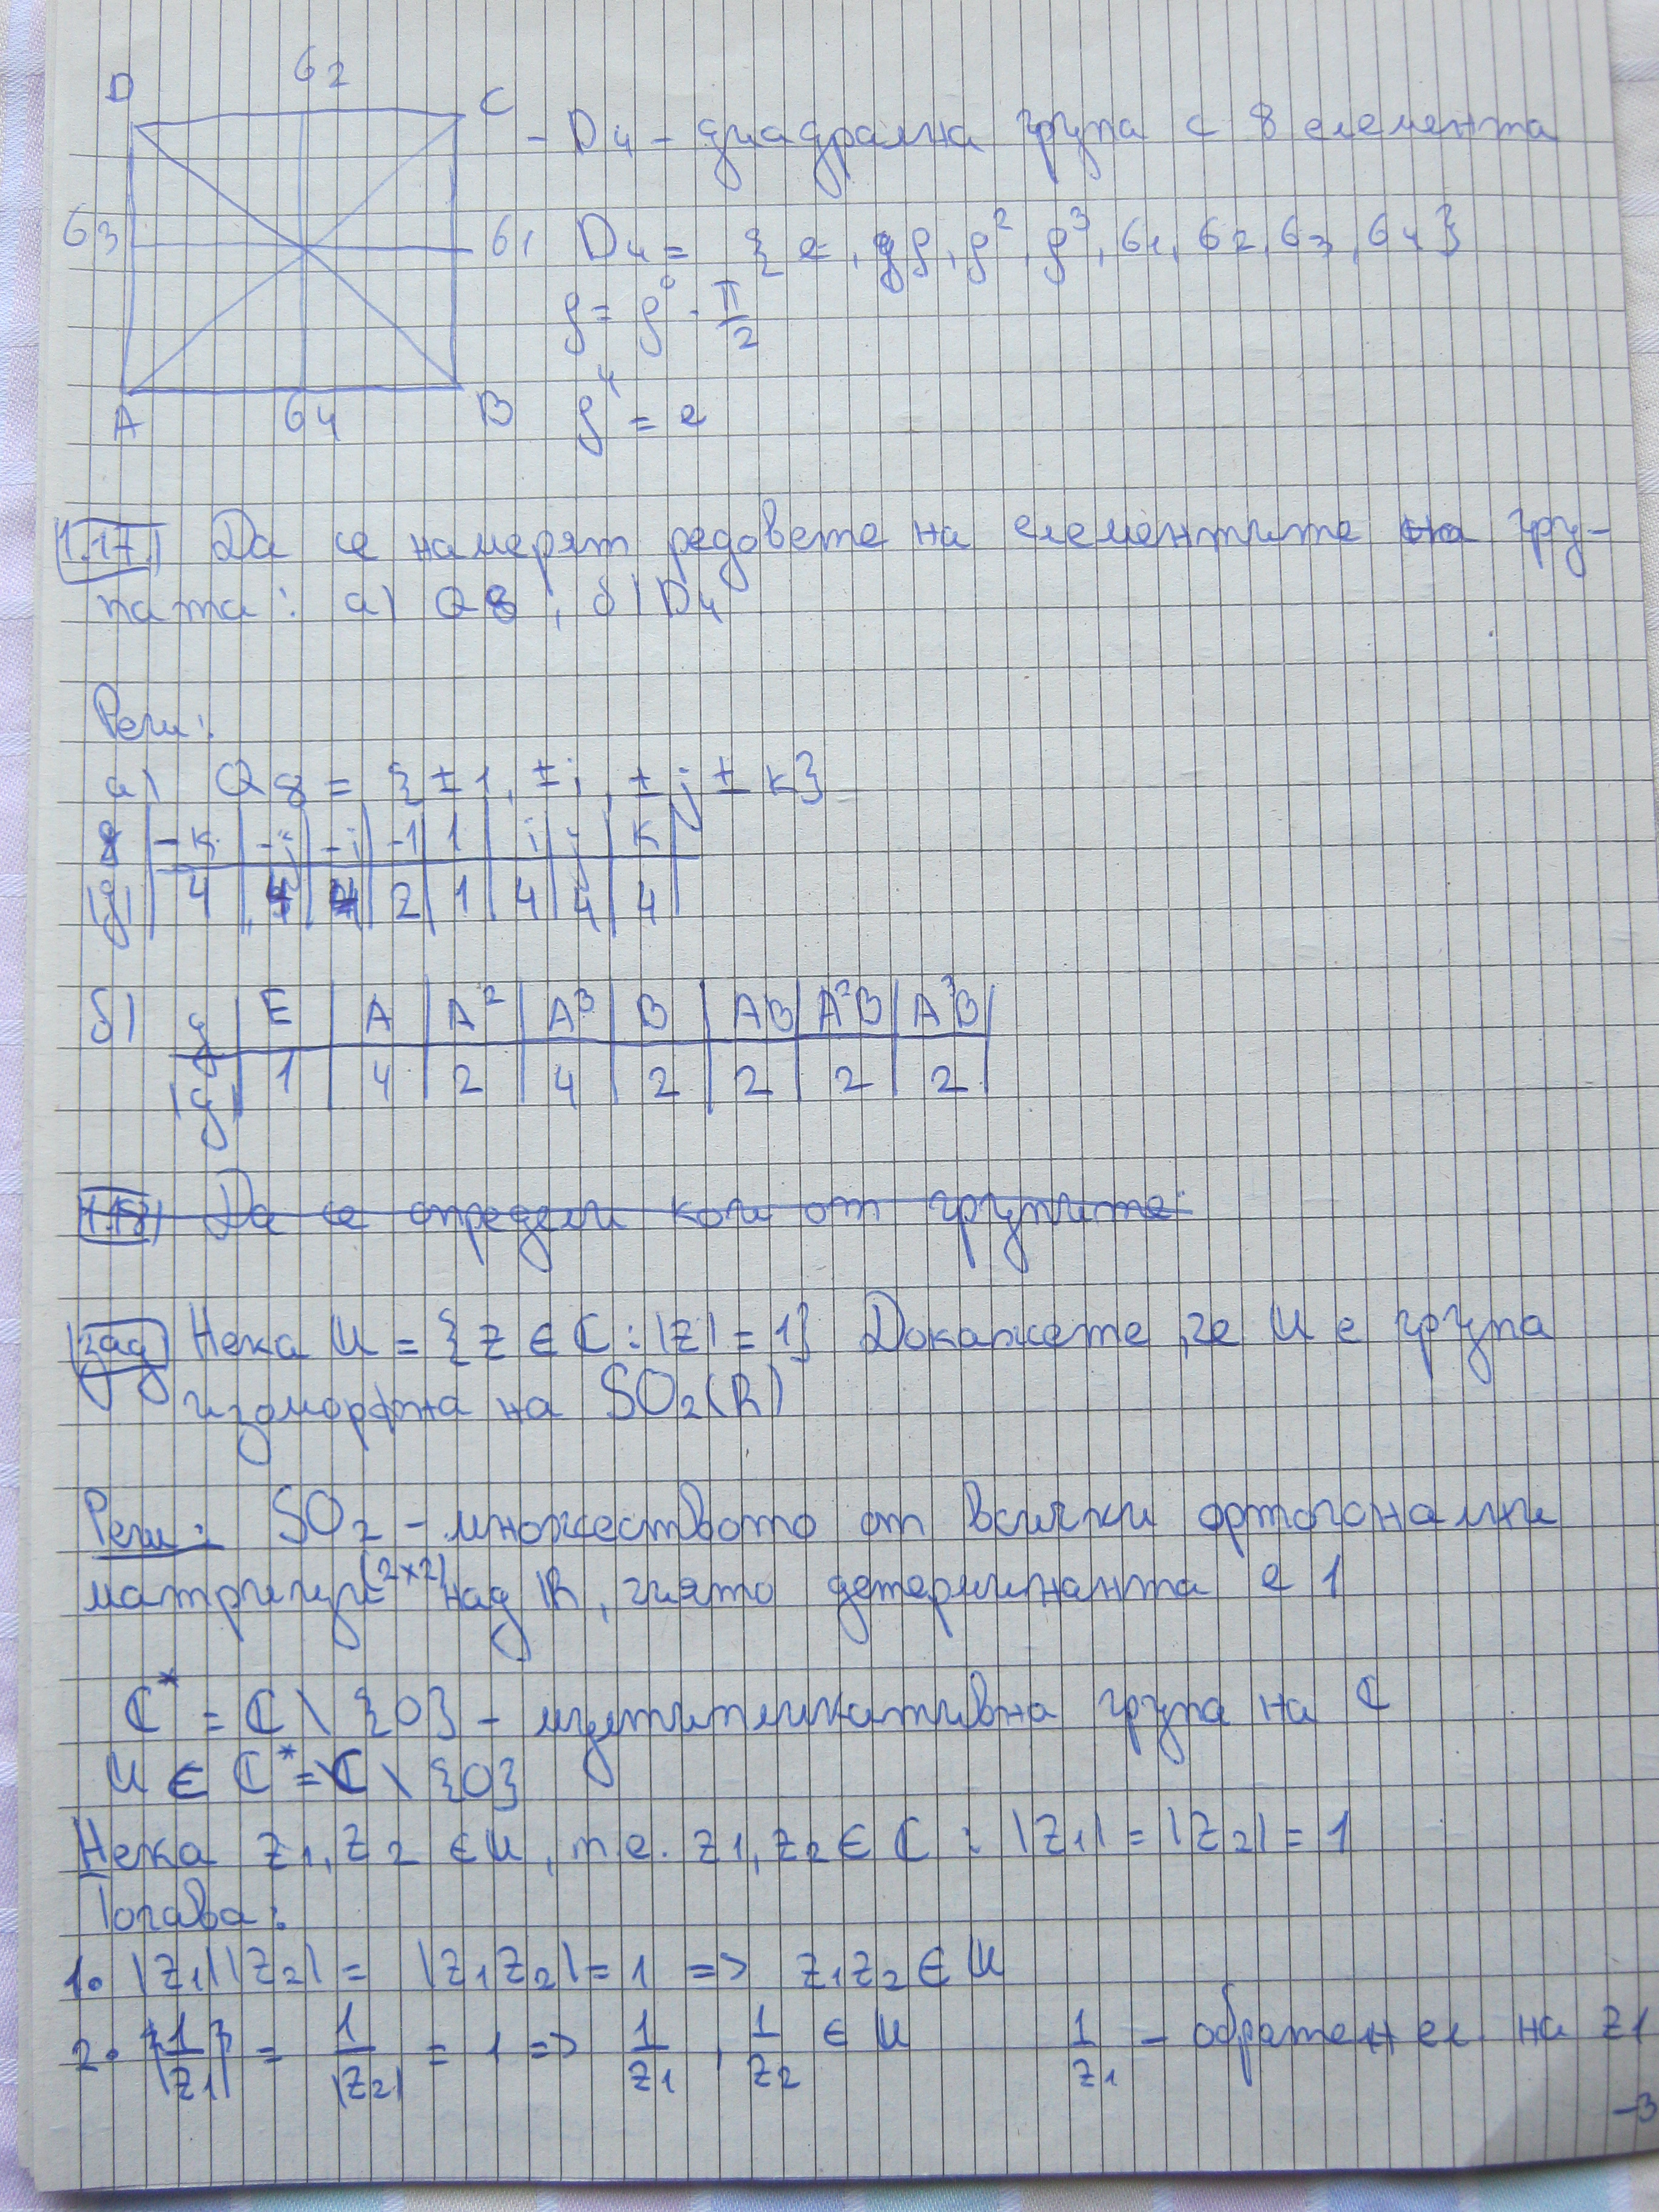 D σ2 C
- D4 - диадрална група с 8 елемента
σ3 σ1 D4 = {e, ρ, ρ², ρ³, σ1, σ2, σ3, σ4}
ρ = ρ° · π/2
A σ4 B ρ⁴ = e
1.17. Да се намерят редовете на елементите на гру-
пата: а) Q8 ; б) D4
Реш:
а) Q8 = {±1, ±i, ±j ± k}
g | -k | -j | -i | -1 | 1 | i | j | k |
|g| | 4 | 4 | 4 | 2 | 1 | 4 | 4 | 4 |
б) g | E | A | A² | A³ | B | AB | A²B | A³B |
|g| | 1 | 4 | 2 | 4 | 2 | 2 | 2 | 2 |
1.18) Да се определи кои от групите:
зад Нека U = {z ∈ ℂ : |z| = 1} Докажете, че U е група
изоморфна на SO2(R)
Реш: SO2 - множеството от всички ортогонални
матрици (2×2) над ℝ, чиято детерминанта е 1
ℂ* = ℂ \ {0} - мултипликативна група на ℂ
U ∈ ℂ* = ℂ \ {0}
Нека z1, z2 ∈ U, т.е. z1, z2 ∈ ℂ : |z1| = |z2| = 1
Тогава:
1. |z1||z2| = |z1z2| = 1 => z1z2 ∈ U
2. |1/z1| = 1/|z2| = 1 => 1/z1, 1/z2 ∈ U 1/z1 - обратен ел. на z1
-3